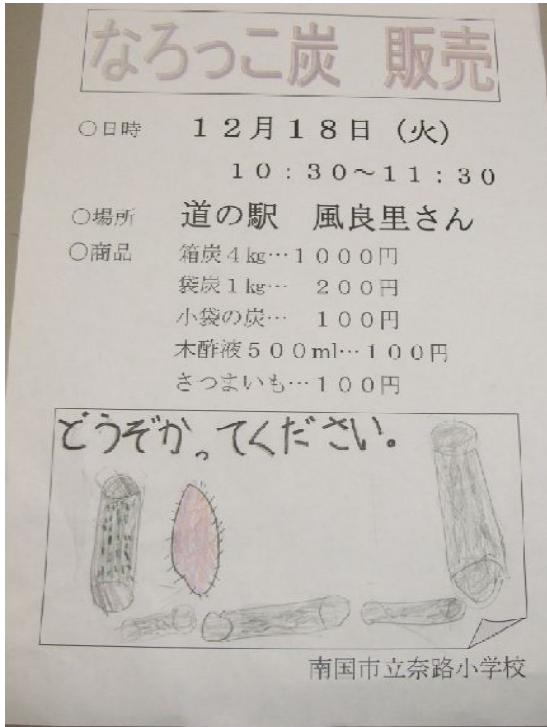 なろっこ炭　販売
○日時　１２月１８日（火）
１０：３０～１１：３０
○場所　道の駅　風良里さん
○商品　箱炭４㎏…１０００円
袋炭１㎏…　２００円
小袋の炭…　１００円
木酢液５００ml…１００円
さつまいも…１００円
どうぞかってください。
南国市立奈路小学校